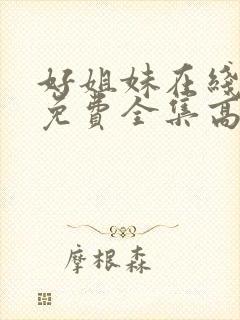 好姐妹在线
免费全集高
摩根森